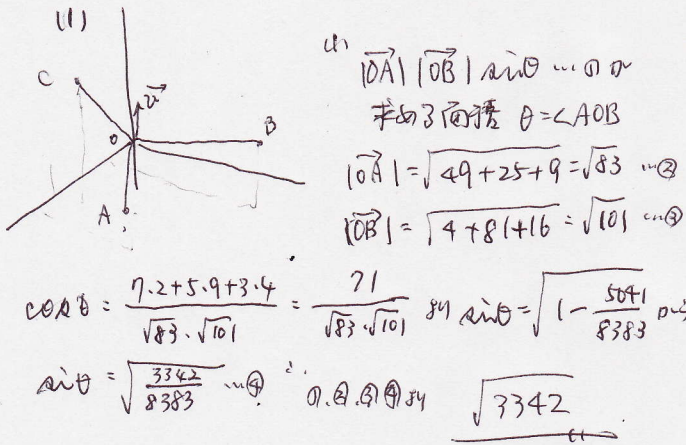 (1)
C
O
v
B
A
(1)
|OA| |OB| sinθ …① が
求める面積 θ=∠AOB
|OA| = √(49+25+9) = √83 …②
|OB| = √(4+81+16) = √101 …③
cosθ = (7·2+5·9+3·4)/(√83·√101) = 71/(√83·√101) より sinθ = √(1 - 5041/8383)
sinθ = √(3342/8383) …④
①,②,③,④より √3342